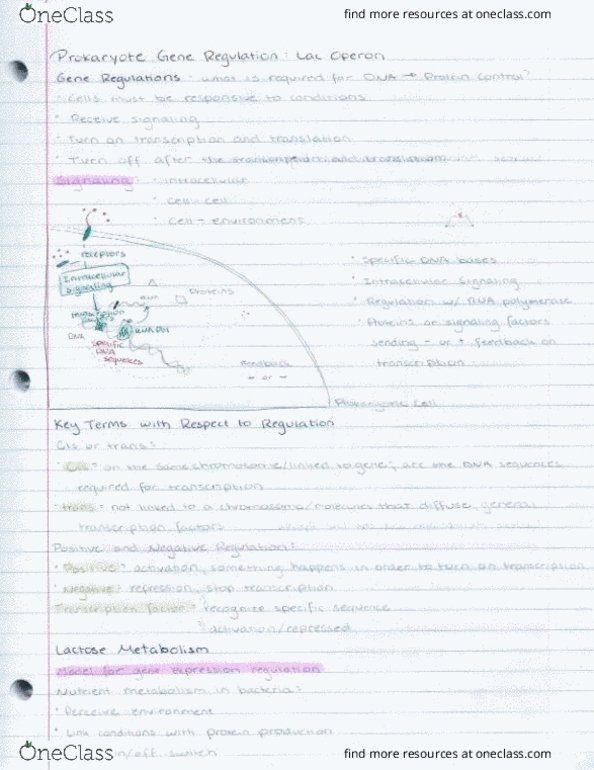 OneClass
find more resources at oneclass.com
Prokaryote Gene Regulation: Lac Operon
Gene Regulations: what is required for DNA → Protein Control?
• Cells must be responsive to conditions
• Receive signaling
• Turn on transcription and translation
• Turn off after the transcription and translation
Signaling: • intracellular
• cell-cell
• cell-environment
receptors
Intracellular signaling
RNA
proteins
DNA
RNA pol
specific DNA sequences
Feedback
- or -
Prokaryotic Cell
• Specific DNA bases
• Intracellular Signaling
• Regulation w/ RNA polymerase
• Proteins or signaling factors
sending - or + feedback on
transcription
Key Terms with Respect to Regulation
Cis or trans:
• Cis = on the same chromosome/linked to gene; are the DNA sequences
required for transcription
• trans = not linked to a chromosome/molecules that diffuse, general
transcription factors
Positive and Negative Regulation:
• Positive: activation, something happens in order to turn on transcription
• Negative: repression, stop transcription
Transcription factor: recognize specific sequence
activation/repressed
Lactose Metabolism
Model for gene expression regulation
Nutrient metabolism in bacteria:
• Perceive environment
• Link conditions with protein production
on/off switch
OneClass
find more resources at oneclass.com